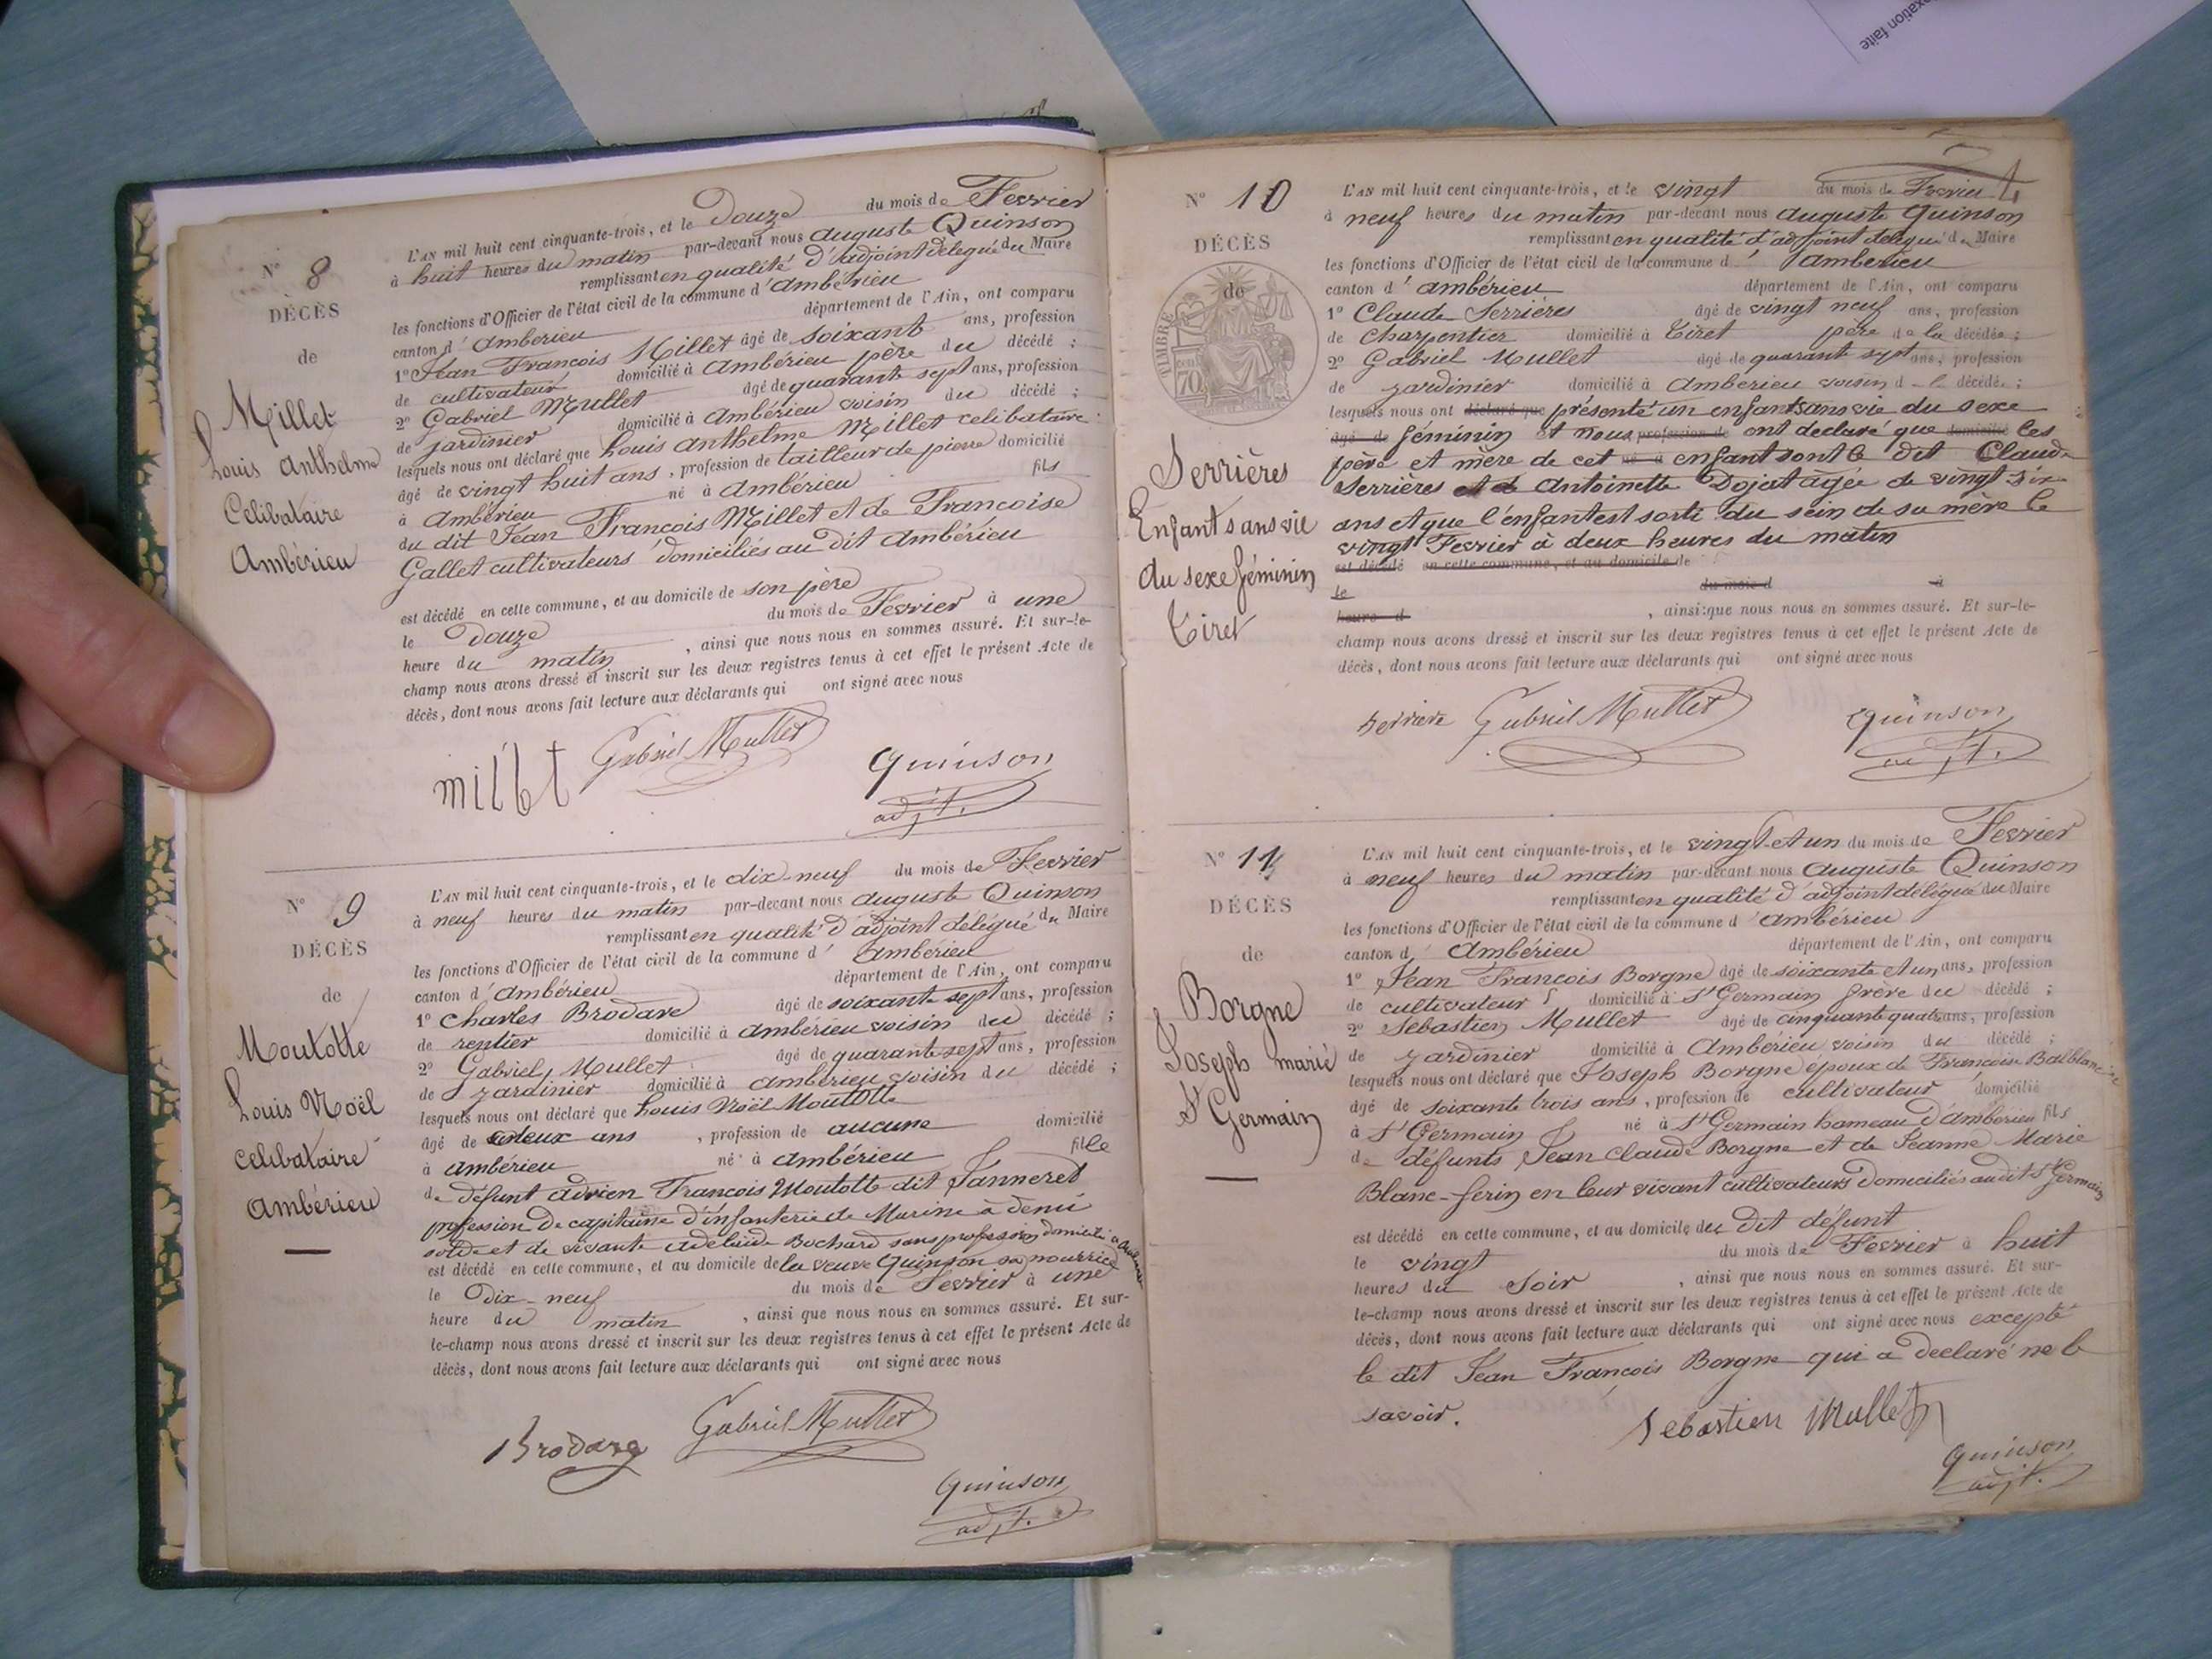 N° 8
DÉCÈS
de
Millet
Louis Anthelme
Célibataire
Ambérieu
L'AN mil huit cent cinquante-trois, et le Douze du mois de Fevrier
à huit heures du matin par-devant nous Auguste Quinson
remplissant en qualité d'adjoint délégué du Maire
les fonctions d'Officier de l'état civil de la commune d'Ambérieu
canton d'Ambérieu département de l'Ain, ont comparu
1° Jean François Millet âgé de soixante ans, profession
de cultivateur domicilié à Ambérieu père du décédé ;
2° Gabriel Mullet âgé de quarante sept ans, profession
de jardinier domicilié à Ambérieu voisin du décédé ;
lesquels nous ont déclaré que Louis Anthelme Millet celibataire
âgé de vingt huit ans, profession de tailleur de pierre domicilié
à Ambérieu né à Ambérieu fils
du dit Jean François Millet et de Francoise
Gallet cultivateurs domiciliés au dit Ambérieu
est décédé en cette commune, et au domicile de son père
le Douze du mois de Fevrier à une
heure du matin, ainsi que nous nous en sommes assuré. Et sur-le-
champ nous avons dressé et inscrit sur les deux registres tenus à cet effet le présent Acte de
décès, dont nous avons fait lecture aux déclarants qui ont signé avec nous
millet Gabriel Mullet Quinson
adjt.
N° 9
DÉCÈS
de
Moutotte
Louis Noël
celibataire
Ambérieu
L'AN mil huit cent cinquante-trois, et le dix-neuf du mois de Fevrier
à neuf heures du matin par-devant nous Auguste Quinson
remplissant en qualité d'adjoint délégué du Maire
les fonctions d'Officier de l'état civil de la commune d'Ambérieu
canton d'Ambérieu département de l'Ain, ont comparu
1° Charles Brodare âgé de soixante sept ans, profession
de rentier domicilié à Ambérieu voisin du décédé ;
2° Gabriel Mullet âgé de quarante sept ans, profession
de jardinier domicilié à Ambérieu voisin du décédé ;
lesquels nous ont déclaré que Louis Noël Moutotte
âgé de deux ans, profession de aucune domicilié
à Ambérieu né à Ambérieu
de défunt Adrien François Moutotte dit Janneret
profession de capitaine d'infanterie de Marine à demi
solde et de vivante Adelaide Bochard sans profession domiciliée à
est décédé en cette commune, et au domicile de la veuve Quinson sa nourrice
le Dix-neuf du mois de Fevrier à une
heure du matin, ainsi que nous nous en sommes assuré. Et sur-
le-champ nous avons dressé et inscrit sur les deux registres tenus à cet effet le présent Acte de
décès, dont nous avons fait lecture aux déclarants qui ont signé avec nous
Brodare Gabriel Mullet
Quinson
adjt.
N° 10
DÉCÈS
de
TIMBRE
70
Serrières
Enfant sans vie
du sexe féminin
Tiret
4
L'AN mil huit cent cinquante-trois, et le vingt du mois de Fevrier
à neuf heures du matin par-devant nous Auguste Quinson
remplissant en qualité d'adjoint délégué du Maire
les fonctions d'Officier de l'état civil de la commune d'Ambérieu
canton d'Ambérieu département de l'Ain, ont comparu
1° Claude Serrières âgé de vingt neuf ans, profession
de Charpentier domicilié à Tiret père de la décédée ;
2° Gabriel Mullet âgé de quarante sept ans, profession
de jardinier domicilié à Ambérieu voisin d la décédée ;
lesquels nous ont déclaré que présenté un enfant sans vie du sexe
âgé de féminin et nous profession de ont declaré que domicilié les
père et mère de cet né à enfant sont le dit Claude
Serrières et de Antoinette Dojat agée de vingt six
ans et que l'enfant est sorti du sein de sa mère le
vingt Fevrier à deux heures du matin
est décédé en cette commune, et au domicile de
le du mois d à
heure d , ainsi que nous nous en sommes assuré. Et sur-le-
champ nous avons dressé et inscrit sur les deux registres tenus à cet effet le présent Acte de
décès, dont nous avons fait lecture aux déclarants qui ont signé avec nous
Serriere Gabriel Mullet Quinson
adjt.
N° 11
DÉCÈS
de
Borgne
Joseph marié
St Germain
L'AN mil huit cent cinquante-trois, et le vingt-et un du mois de Fevrier
à neuf heures du matin par-devant nous Auguste Quinson
remplissant en qualité d'adjoint délégué du Maire
les fonctions d'Officier de l'état civil de la commune d'Ambérieu
canton d'Ambérieu département de l'Ain, ont comparu
1° Jean François Borgne âgé de soixante et un ans, profession
de cultivateur domicilié à St Germain frère du décédé ;
2° Sebastien Mullet âgé de cinquante quatre ans, profession
de jardinier domicilié à Ambérieu voisin du décédé ;
lesquels nous ont déclaré que Joseph Borgne époux de Francoise
âgé de soixante trois ans, profession de cultivateur domicilié
à St Germain né à St Germain hameau d'Ambérieu fils
de défunts Jean Claude Borgne et de Jeanne Marie
Blanc-ferin en leur vivant cultivateurs domiciliés au dit St Germain
est décédé en cette commune, et au domicile du dit défunt
le vingt du mois de Fevrier à huit
heures du soir, ainsi que nous nous en sommes assuré. Et sur-
le-champ nous avons dressé et inscrit sur les deux registres tenus à cet effet le présent Acte de
décès, dont nous avons fait lecture aux déclarants qui ont signé avec nous excepté
le dit Jean François Borgne qui a declaré ne le
savoir.
Sebastien Mullet
Quinson
adjt.
xation faite